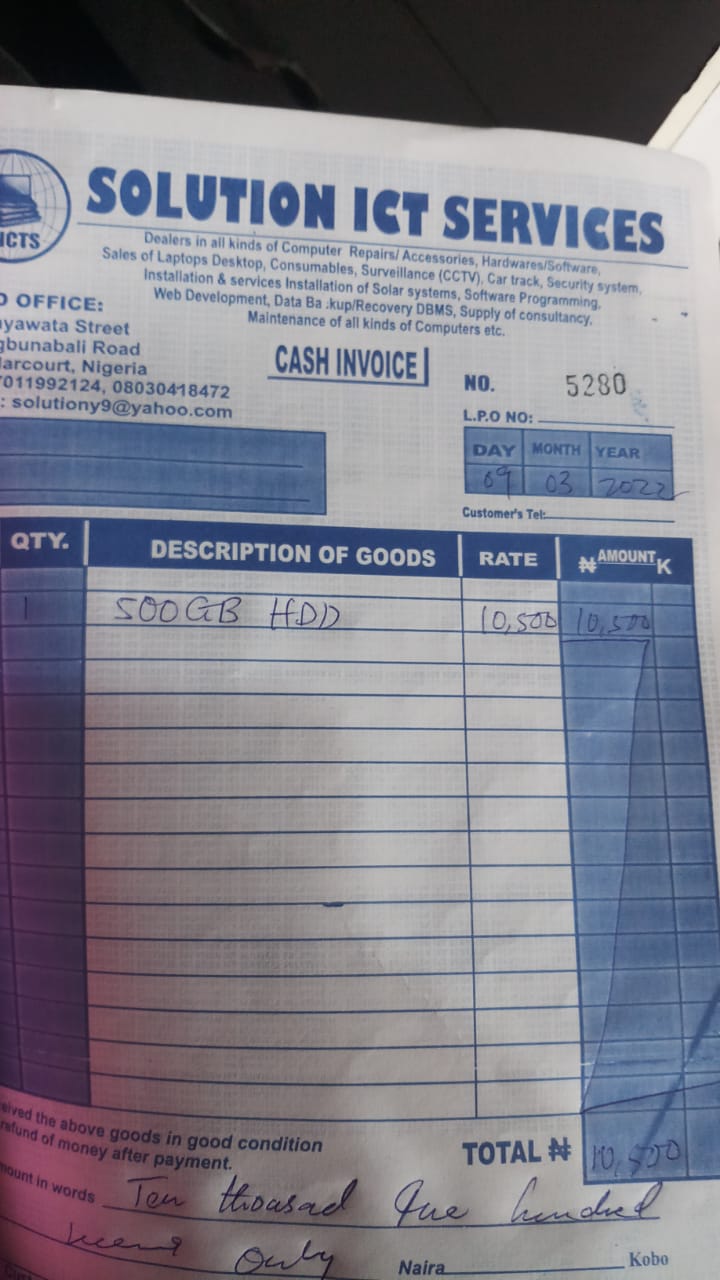 ICTS
SOLUTION ICT SERVICES
Dealers in all kinds of Computer Repairs/ Accessories, Hardwares/Software,
Sales of Laptops Desktop, Consumables, Surveillance (CCTV), Car track, Security system,
Installation & services Installation of Solar systems, Software Programming,
Web Development, Data Ba :kup/Recovery DBMS, Supply of consultancy,
Maintenance of all kinds of Computers etc.
OFFICE:
yawata Street
gbunabali Road
arcourt, Nigeria
7011992124, 08030418472
: solutiony9@yahoo.com
CASH INVOICE
NO. 5280
L.P.O NO:
DAY MONTH YEAR
09 03 2022
Customer's Tel:
QTY. DESCRIPTION OF GOODS RATE ₦ AMOUNT K
1 500GB HDD 10,500 10,500
eived the above goods in good condition
refund of money after payment.
TOTAL ₦ 10,500
mount in words Ten thousad five hundred
only Naira Kobo